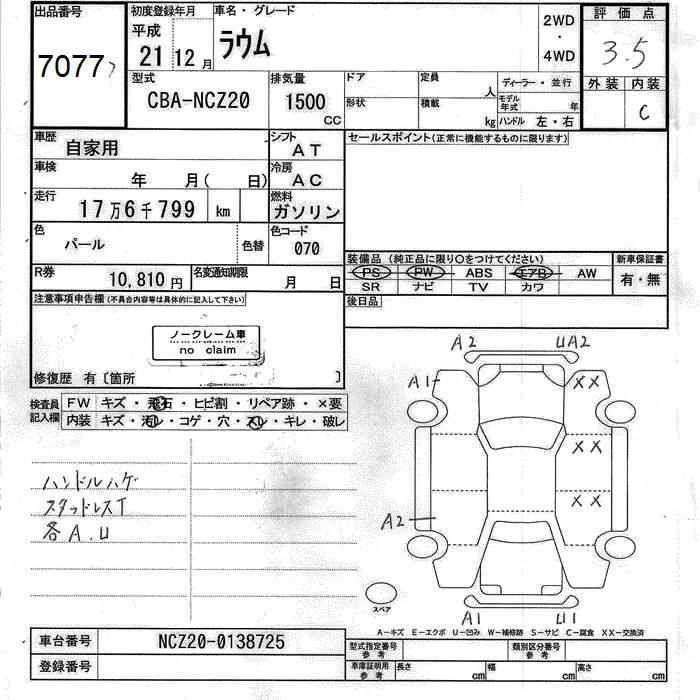 出品番号 7077
初度登録年月 平成 21 12月
車名・グレード ラウム
2WD・4WD
評価点 3.5
外装 内装 C
型式 CBA-NCZ20
排気量 1500 CC
ドア 定員 人
形状 積載 kg
ディーラー・並行
モデル年式 年
ハンドル 左・右
車歴 自家用
シフト AT
セールスポイント(正常に機能するものに限ります)
車検 年 月( 日)
冷房 AC
走行 17万6千799 km
燃料 ガソリン
色 パール 色替
色コード 070
装備品 (純正品に限り○をつけてください)
PS PW ABS エアB AW
SR ナビ TV カワ
新車保証書 有・無
R券 10,810円
名変通知期限 月 日
後日品
注意事項申告欄 (不具合内容等は具体的に記入して下さい)
ノークレーム車
no claim
修復歴 有〔箇所 〕
検査員記入欄
FW キズ・飛石・ヒビ割・リペア跡・×要
内装 キズ・汚レ・コゲ・穴・スレ・キレ・破レ
ハンドルハゲ
スタッドレスT
各A.U
A2 UA2
A1 XX
XX
XX
A2
スペア
A1 U1
A-キズ E-エクボ U-凹み W-補修跡 S-サビ C-腐食 XX-交換済
車台番号 NCZ20-0138725
登録番号
型式指定番号 参考
類別区分番号 参考
車庫証明用 参考 長さ cm 幅 cm 高さ cm